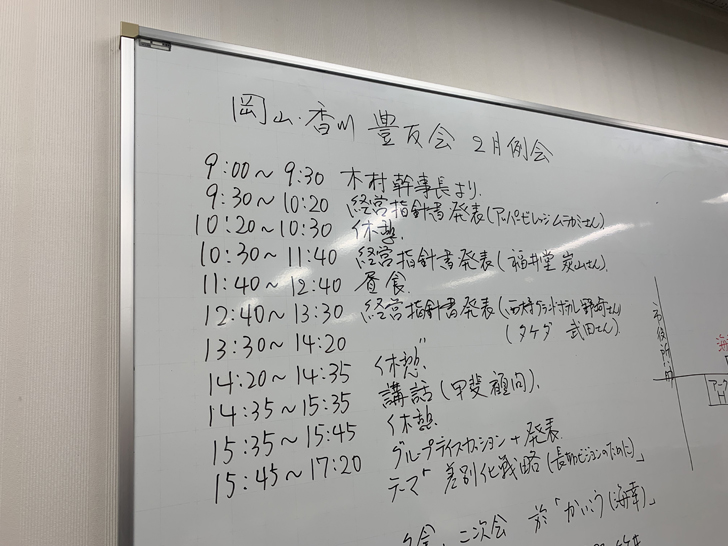 岡山・香川 豊友会 2月例会
9:00〜9:30 木村幹事長より.
9:30〜10:20 経営指針書発表(
10:20〜10:30 休憩.
10:30〜11:40 経営指針書発表(福井堂 炭山さん).
11:40〜12:40 昼食.
12:40〜13:30 経営指針書発表(
13:30〜14:20 〃 (タケダ 武田さん)
14:20〜14:35 休憩.
14:35〜15:35 講話(甲斐顧問).
15:35〜15:45 休憩.
15:45〜17:20 グループディスカッション+発表.
テーマ「差別化戦略(長期ビジョンのために)」
二次会 於「かいこう(海幸)」
市役所